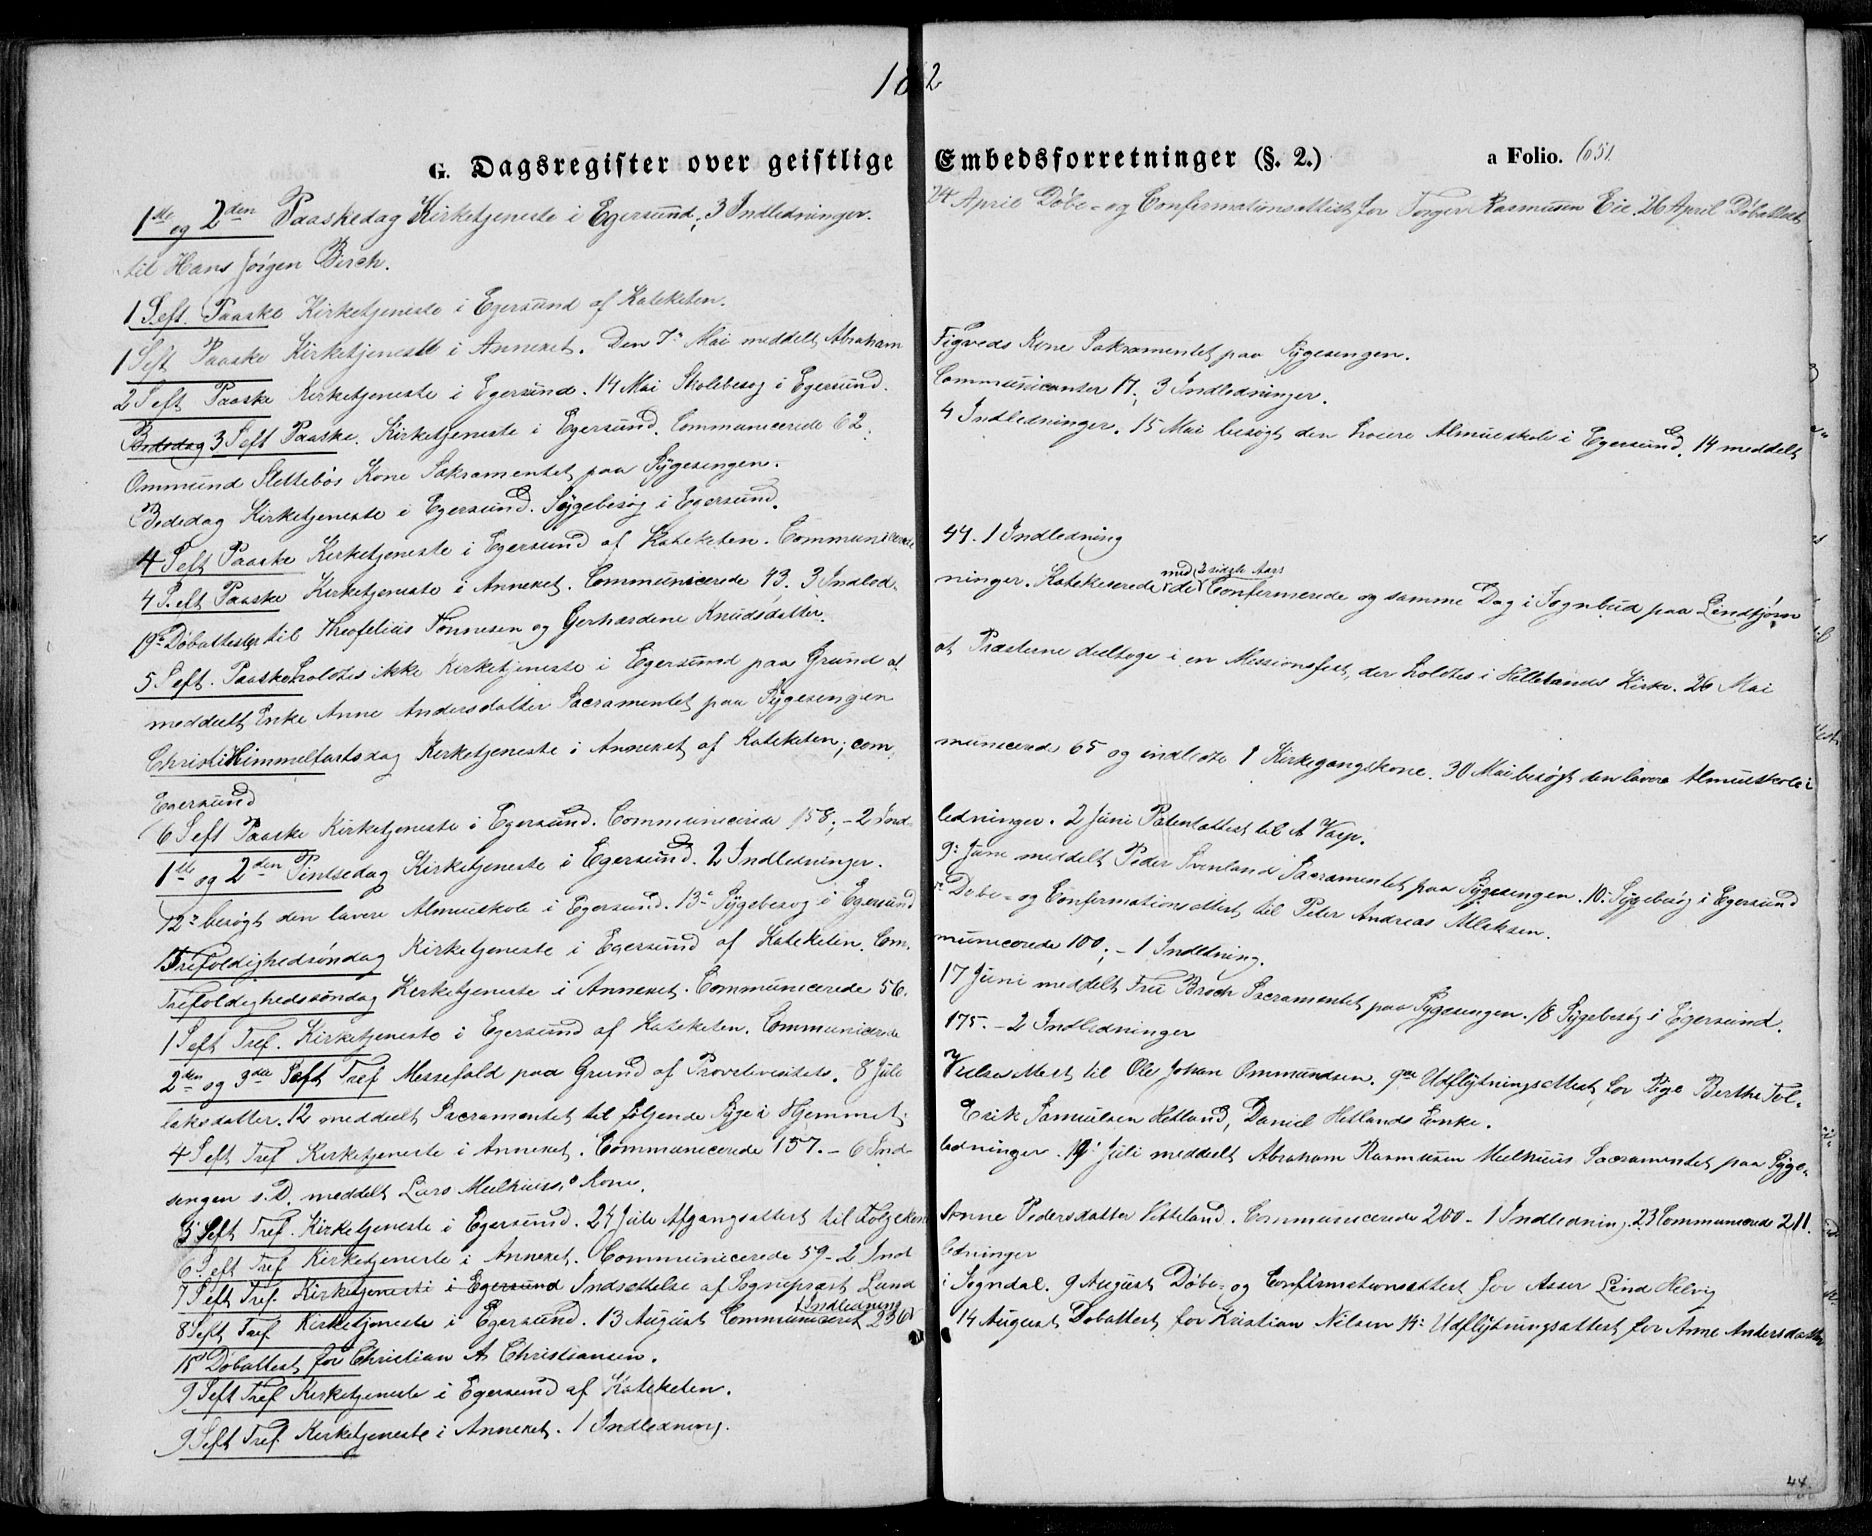 18 2
G. Dagsregister over geistlige Embedsforretninger (§. 2.) a Folio. 651.
1ste og 2den Paaskedag Kirketjeneste i Egersund, 3 Indledninger. 24 April Døbe- og Confirmationsattest for Torger Rasmusen Eie. 26 April Døbattest
til Hans Jörgen Birch.
1 S. eft. Paaske Kirketjeneste i Egersund af Kateketen.
1 S eft Paaske Kirketjeneste i Annexet. Den 7de Mai meddelt Abraham Sigveds Kone Sakramentet paa Sygesengen.
2 S eft Paaske Kirketjeneste i Egersund. 14 Mai Skolebesøg i Egersund. Communicanter 17; 3 Indledninger.
Bededag 3 S eft Paaske. Kirketjeneste i Egersund. Communicerede 62. 4 Indledninger. 15 Mai besøgt den høiere Almueskole i Egersund. 14 meddelt
Ommund Slettebös Kone Sakramentet paa Sygesengen.
Bededag Kirketjeneste i Egersund. Sygebesøg i Egersund.
4 S eft Paaske Kirketjeneste i Egersund af Kateketen. Communicerede 44. 1 Indledning
4 S. eft Paaske Kirketjeneste i Annexet. Communicerede 43. 3 Indled- ninger. Katekeserede med de 2 sidste Aars Confirmerede og samme Dag i Sognbud paa
19de Døbattester til Theofelius Tønnesen og Gerhardene Knudsdatter.
5 S eft. Paaske holdtes ikke Kirketjeneste i Egersund paa Grund af at Præsterne deeltoge i en Missionsfest, der holdtes i Hellelands Kirke. 26 Mai
meddelt Enke Anne Andersdatter Sacramentet paa Sygesengen
Christi Himmelfartsdag Kirketjeneste i Annexet af Kateketen; com- municerede 65 og indledte 1 Kirkegangskone. 30 Mai besøgt den lavere Almueskole i
Egersund
6 S eft Paaske Kirketjeneste i Egersund. Communicerede 158; - 2 Ind- ledninger. 2 Juni Patentattest til A
1ste og 2den Pintsedag Kirketjeneste i Egersund. 2 Indledninger. 9: Juni meddelt Peder Svenland Sacramentet paa Sygesengen. 10: Sygebesøg i Egersund
12: besøgt den lavere Almueskole i Egersund. 13: Sygebesøg i Egersund Døbe- og Confirmationsattest til Peter Andreas
Trefoldighedsøndag Kirketjeneste i Egersund af Kateketen. Com- municerede 100; - 1 Indledning.
Trefoldighedssøndag Kirketjeneste i Annexet. Communicerede 56. 17 Juni meddelt Fru Broch Sacramentet paa Sygesengen. 18 Sygebesøg i Egersund.
1 S eft Tref. Kirketjeneste i Egersund af Kateketen. Communicerede 175. - 2 Indledninger
2den og 3die S eft Tref Messefald paa Grund af Provstevisitats. 8 Juli Vielsesattest til Ole Johan Ommundsen. 9de Udflytningsattest for Pige Berthe Tol-
laksdatter. 12 meddelt Sacramentet til følgende Syge i Hjemmet: Erik Samuelsen Hetland, Daniel Hetlands Enke.
4 S eft Tref Kirketjeneste i Annexet. Communicerede 157. - 6 Ind- ledninger. 19: Juli meddelt Abraham Rasmusen Melhuus Sacramentet paa Syge-
sengen s.D. meddelt Lars Melhuus's Kone.
5 S eft Tref. Kirketjeneste i Egersund. 24 Juli Afgangsattest til Anne Pedersdatter Communicerede 200 - 1 Indledning. 23 Communicerede 211.
6 S eft Tref Kirketjeneste i Annexet. Communicerede 59 - 2 Ind ledninger
7 S eft Tref. Kirketjeneste i Egersund Indsettelse af Sognepræst Lund i Sogndal. 9 August Døbe- og Confirmationsattest for Asser Lind Helvig
8 S eft Tref Kirketjeneste i Egersund. 13 August Communiceret 236 1 Indledning 14 August Døbattest for Kristian Nilsen 14: Udflytningsattest for Anne Andersdatter
15 Døbattest for Christian A Christiansen.
9 S eft Tref Kirketjeneste i Egersund af Kateketen.
9 S eft Tref. Kirketjeneste i Annexet. 1 Indledning.